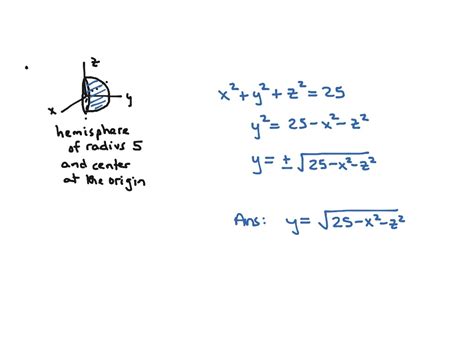 z
y
x
hemisphere
of radius 5
and center
at the origin
x²+y²+z²=25
y²=25-x²-z²
y=±√25-x²-z²
Ans: y=√25-x²-z²